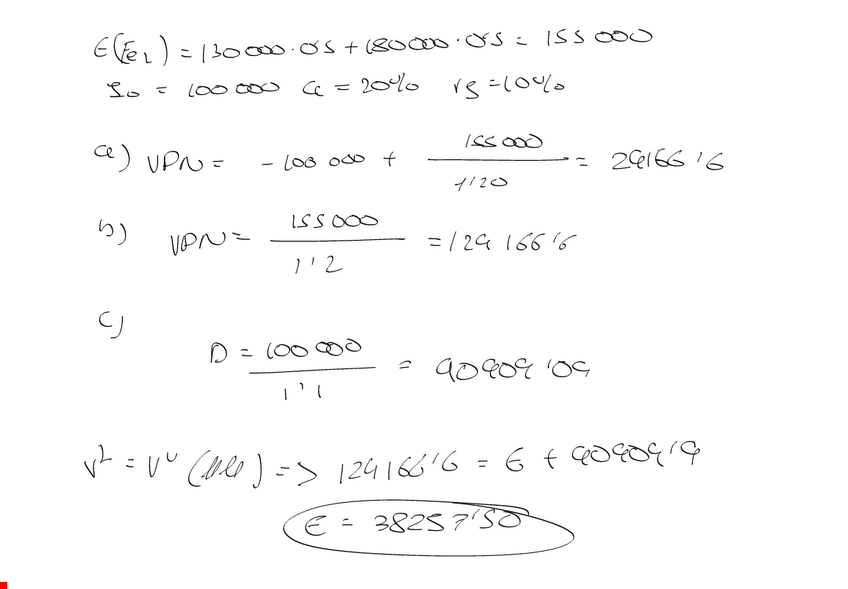 E(FE1) = 130000·0'5 + 180000·0'5 = 155000
I0 = 100000 Ce = 20% rs = 10%
a) VPN = -100 000 + 155000 / 1'20 = 29166'6
b) VPN = 155000 / 1'2 = 129 166'6
c)
D = 100 000 / 1'1 = 90909'09
V^L = V^U (MM) => 129166'6 = E + 90909'9
E = 38257'50